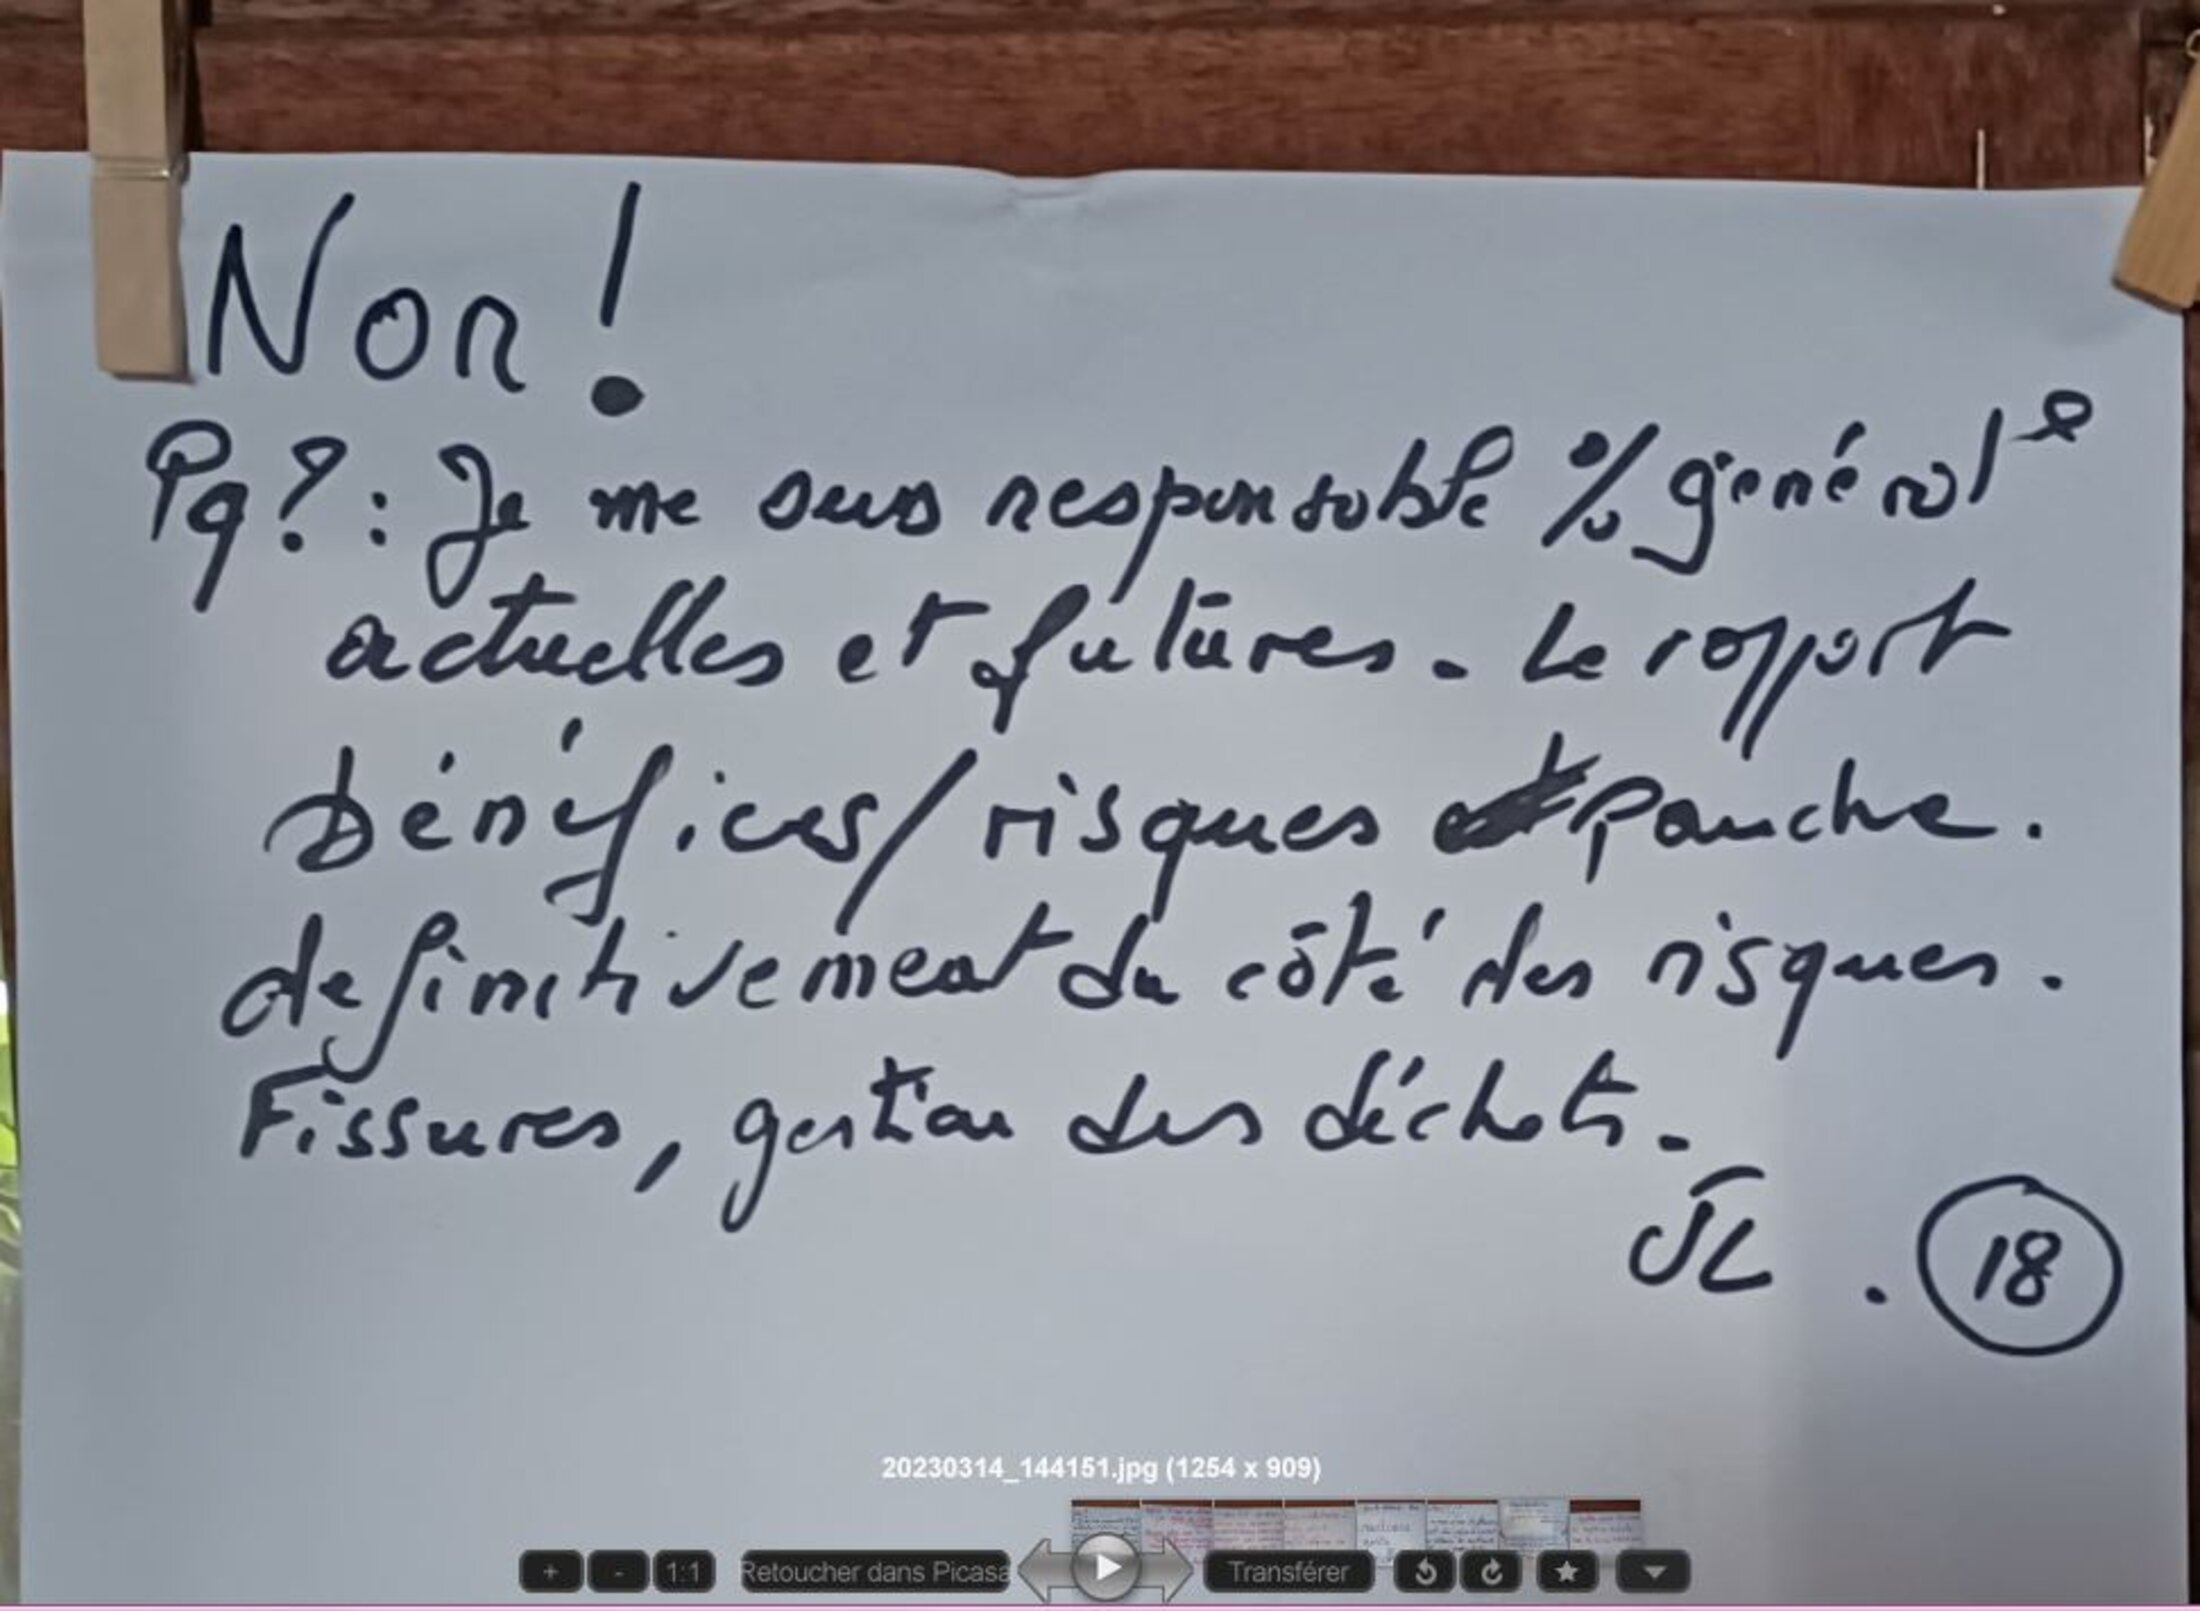 Non !
Pq ? : Je me sens responsable % général°
actuelles et futures. Le rapport
bénéfices/risques panche.
definitivement du côté des risques.
Fissures, gestion des déchets.
JL . 18
20230314_144151.jpg (1254 x 909)
+ - 1:1 Retoucher dans Picasa Transférer